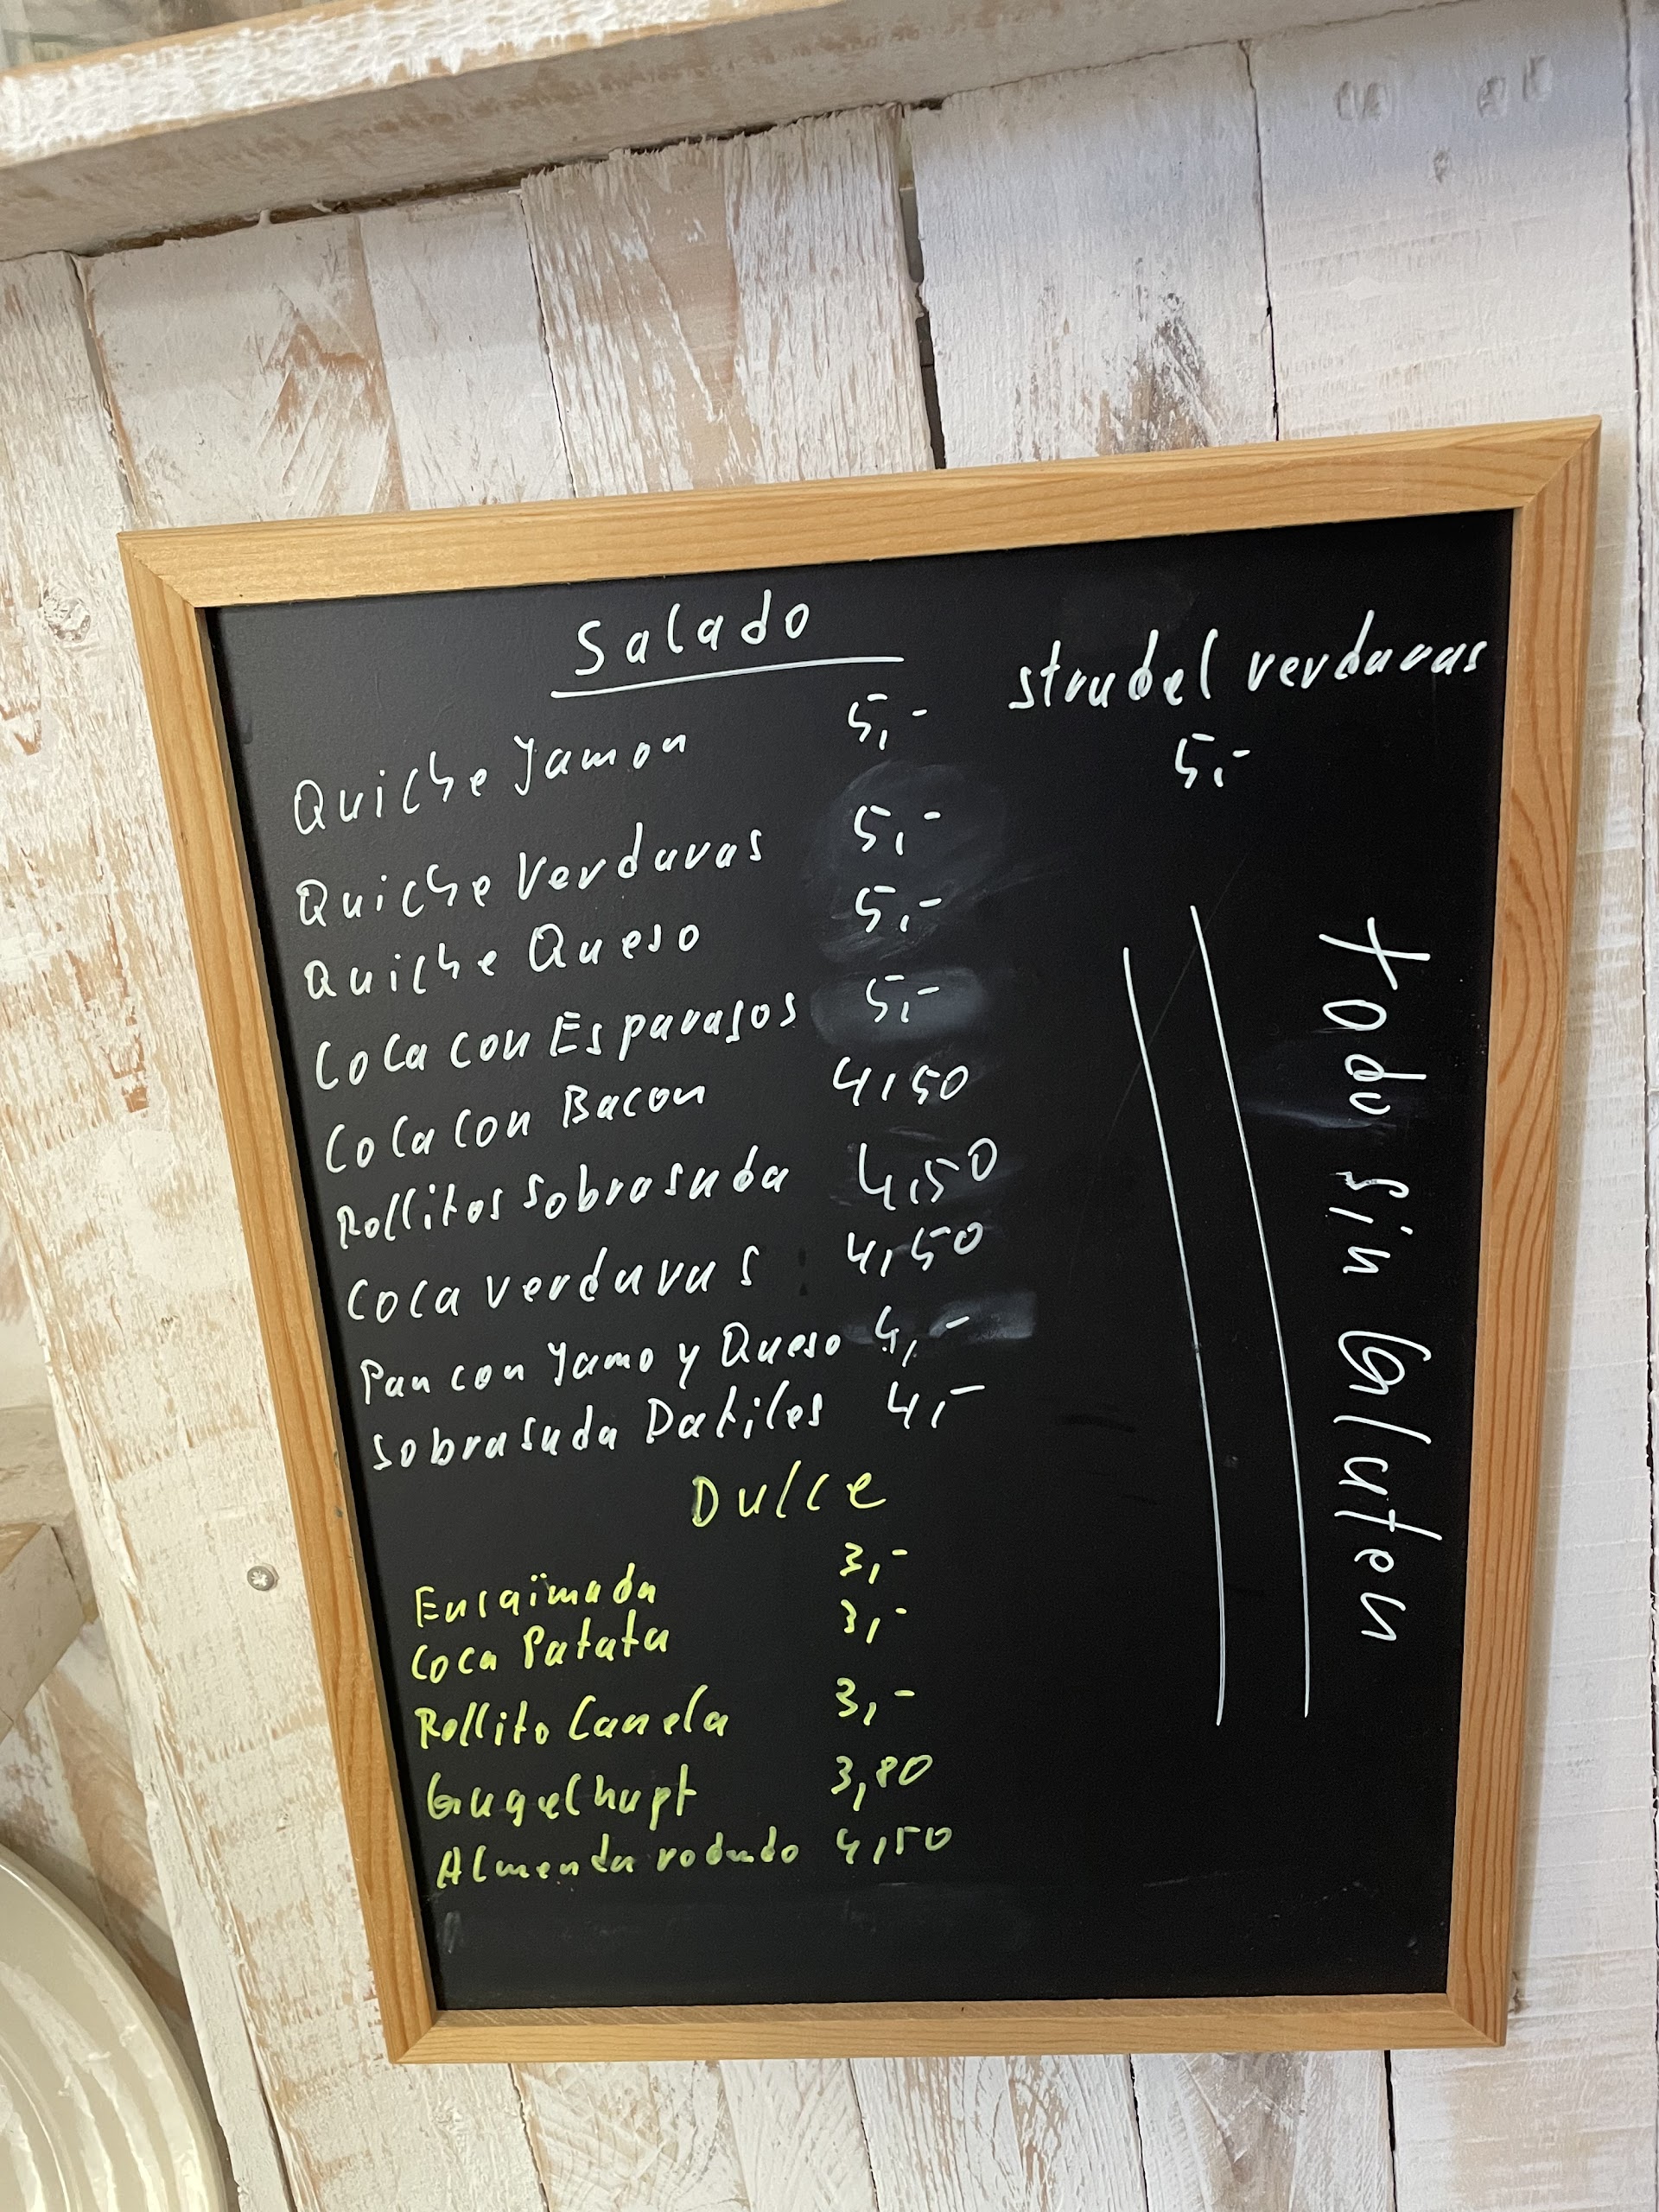 Salado
Quiche Jamon 5,-
Quiche Verduras 5,-
Quiche Queso 5,-
Coca con Esparagos 5,-
Coca con Bacon 4,50
Rollitos Sobrasada 4,50
Coca verduras 4,50
Pan con Jamo y Queso 4,-
Sobrasada Datiles 4,-
strudel verduras
5,-
Todo Sin Gluten
Dulce
Ensaïmada 3,-
Coca Patata 3,-
Rollito Canela 3,-
Gugelhupf 3,80
Almenda 4,50